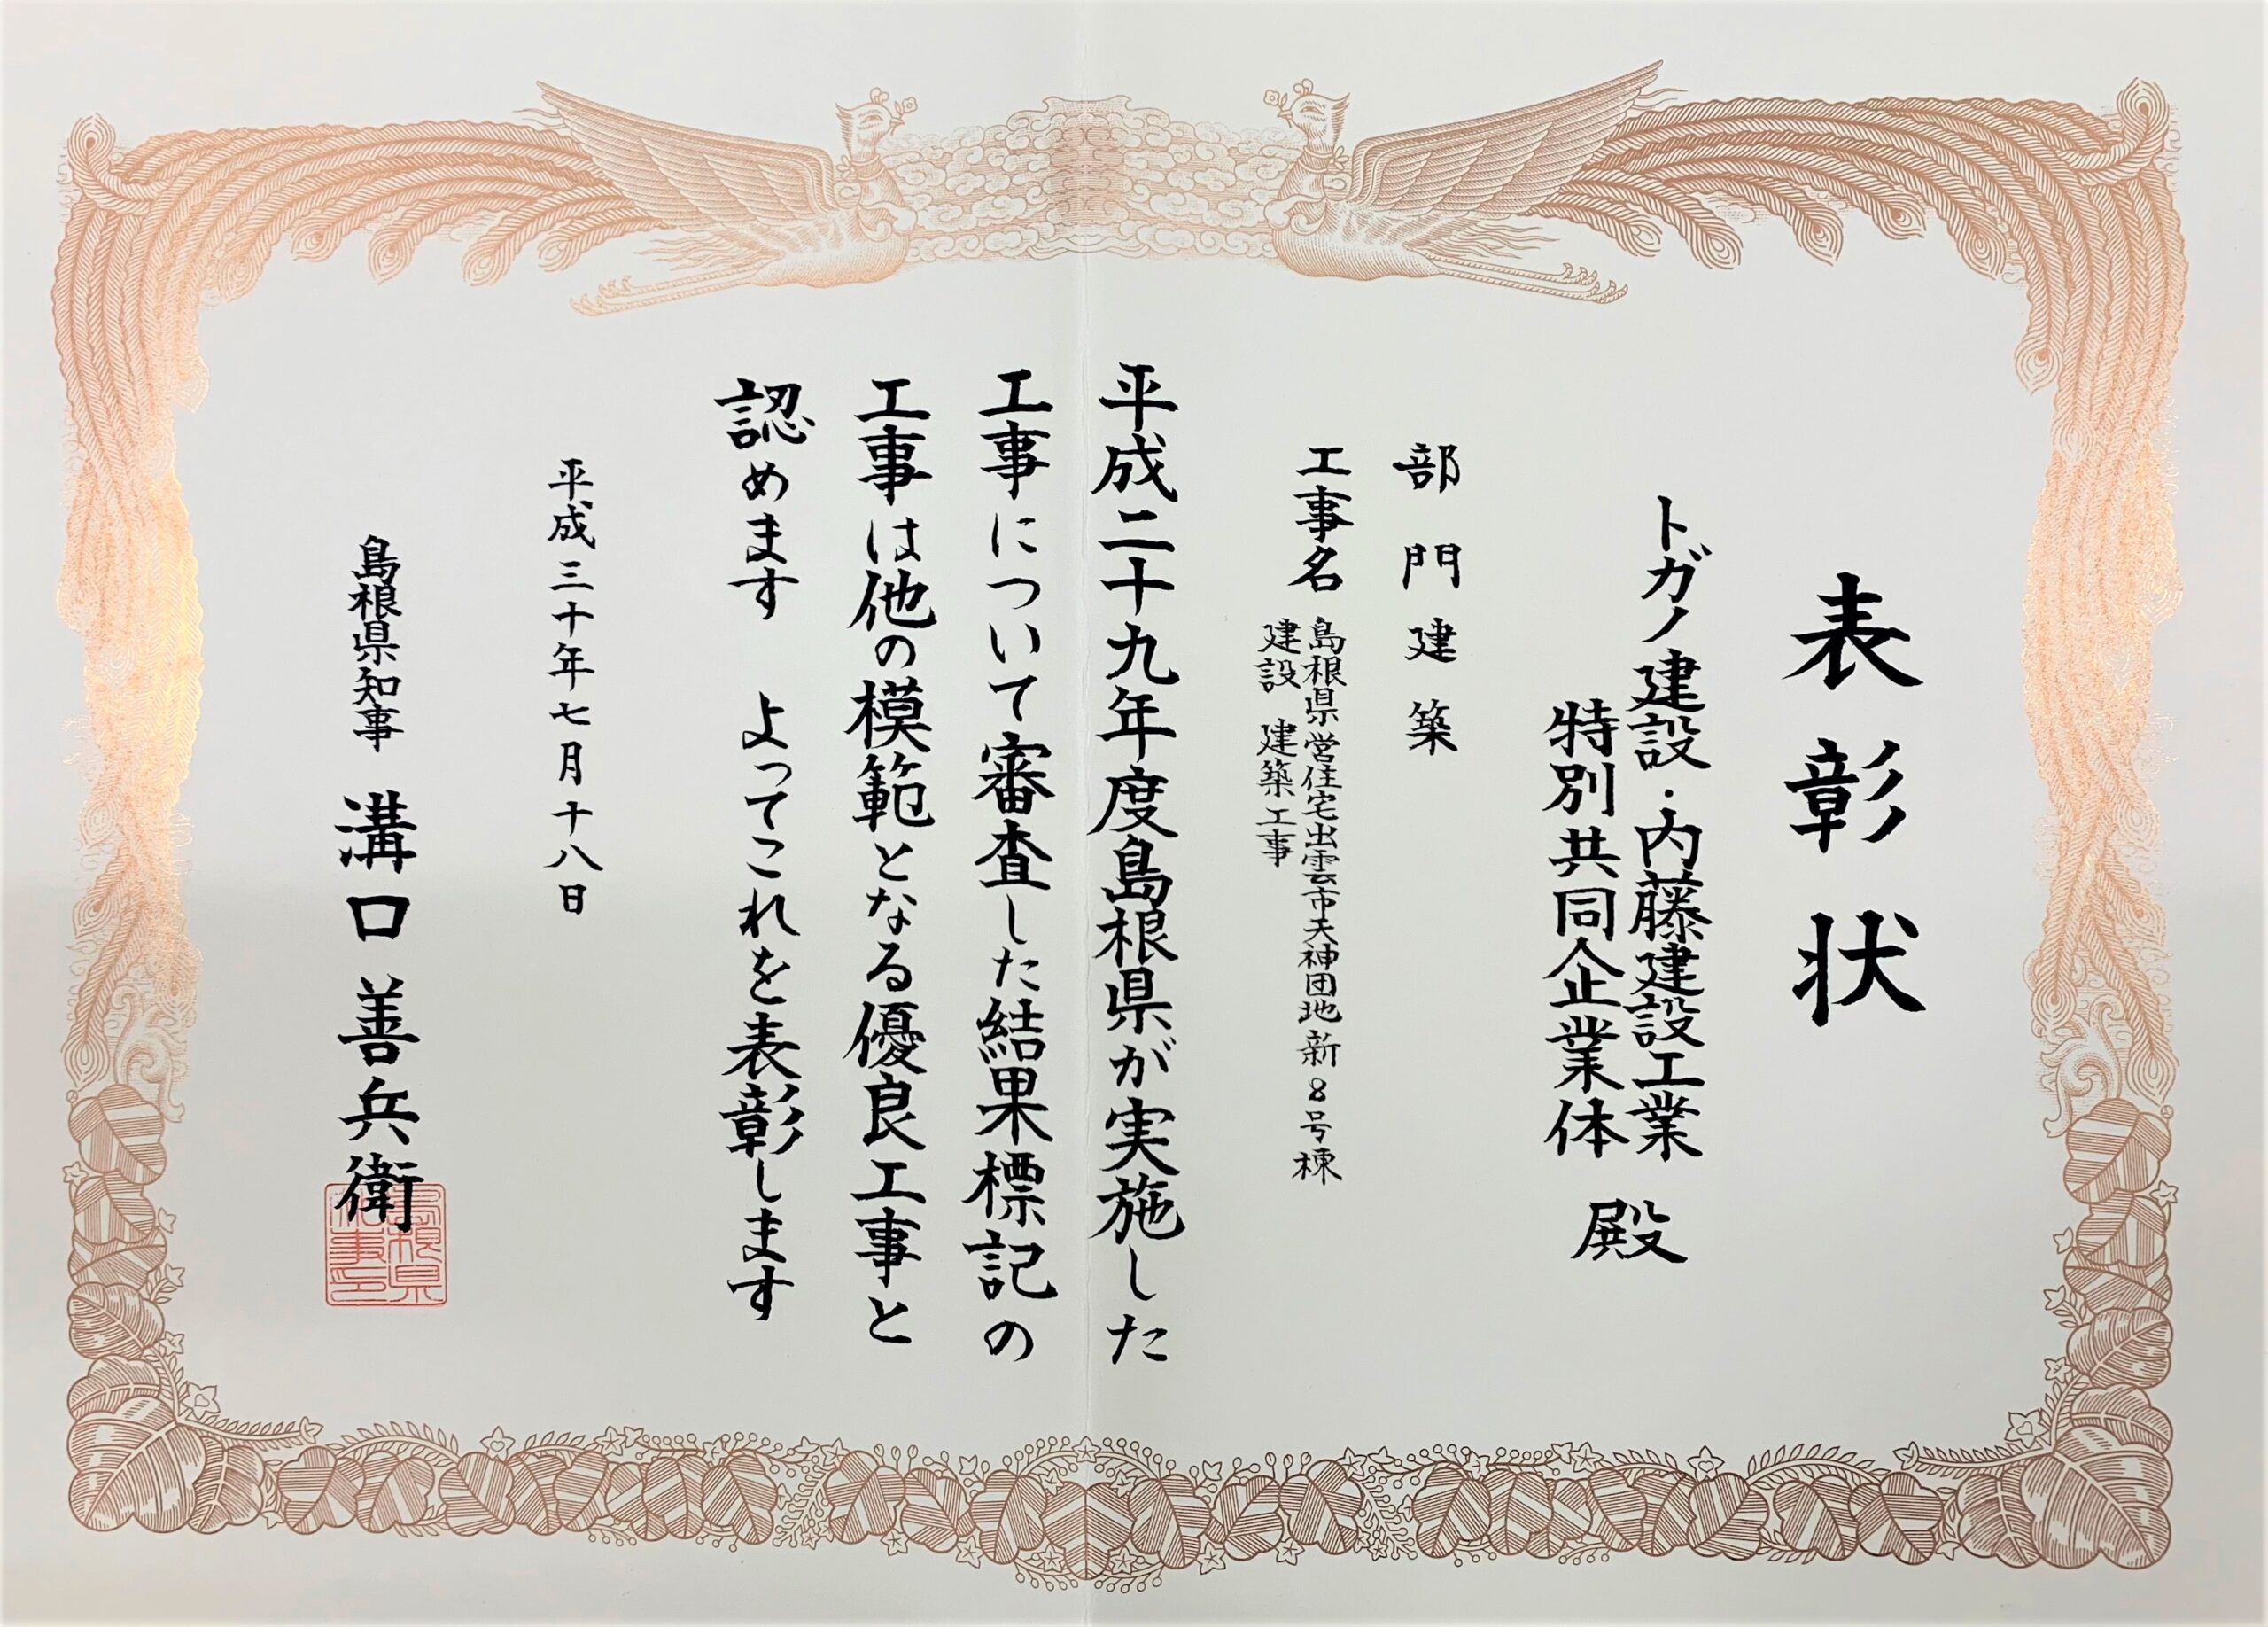 表彰状
トガノ建設・内藤建設工業
特別共同企業体 殿
部門 建築
工事名 島根県営住宅出雲市天神団地新8号棟
建設 建築工事
平成二十九年度島根県が実施した
工事について審査した結果標記の
工事は他の模範となる優良工事と
認めます よってこれを表彰します
平成三十年七月十八日
島根県知事 溝口善兵衛
島根県
知事之印